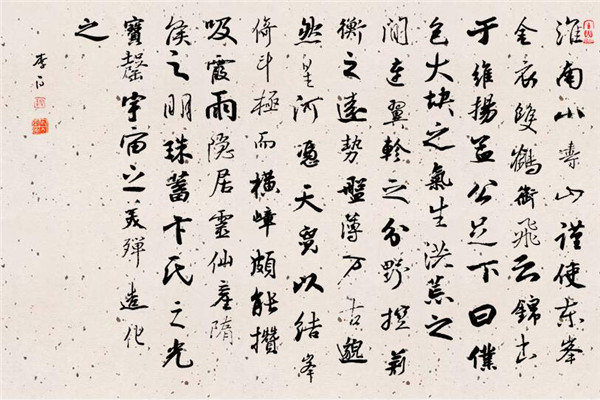 淮南小壽山謹使東峯
金衣雙鶴銜飛云錦書
于維揚孟公足下曰僕
包大塊之氣生洪荒之
間連翼軫之分野控荆
衡之遠勢盤薄万古邈
然星河憑天霓以結峯
倚斗極而橫嶂頗能攢
吸霞雨隐居靈仙產隋
侯之明珠蓄卞氏之光
寶罄宇宙之美殫造化
之
李白